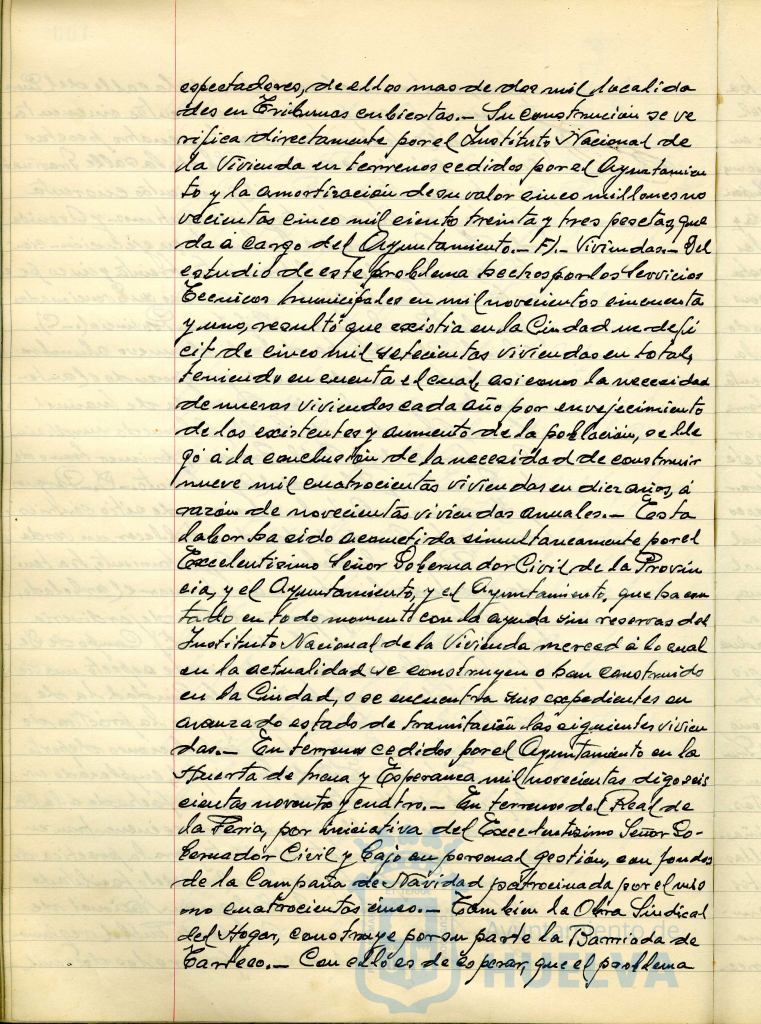 espectadores, de ellos mas de dos mil localida
des en Tribunas cubiertas.- Su construcion se ve
rifica directamente por el Instituto Nacional de
la Vivienda en terrenos cedidos por el Ayuntamien
to y la amortización de su valor cinco millones no
vecientas cinco mil ciento treinta y tres pesetas, que
da á cargo del Ayuntamiento.- F).- Viviendas.- Del
estudio de este problema hechos por los Servicios
Tecnicos Municipales en mil novecientos cincuenta
y uno, resultó que existia en la Ciudad un defi
cit de cinco mil setecientas viviendas en total,
teniendo en cuenta el cual, asi como la necesidad
de nuevas viviendas cada año por envejecimiento
de las existentes y aumento de la población, se lle
gó á la conclusión de la necesidad de construir
nueve mil cuatrocientas viviendas en diez años, á
razón de novecientas viviendas anuales.- Esta
labor ha sido acometida simultaneamente por el
Excelentisimo Señor Gobernador Civil de la Provin
cia, y el Ayuntamiento, y el Ayuntamiento, que ha con
tado en todo momento con la ayuda sin reservas del
Instituto Nacional de la Vivienda merced á lo cual
en la actualidad se construyen o han construido
en la Ciudad, o se encuentra sus expedientes en
avanzado estado de tramitación las siguientes vivien
das.- En terrenos cedidos por el Ayuntamiento en la
Huerta de Mena y Esperanza mil novecientas digo seis
cientas noventa y cuatro.- En terrenos del Real de
la Feria, por iniciativa del Excelentisimo Señor Go-
bernador Civil y bajo su personal gestión, con fondos
de la Campaña de Navidad patrocinada por el mis
mo cuatrocientas cinco.- Tambien la Obra Sindical
del Hogar, construye por su parte la Barriada de
- Con ello es de esperar, que el problema
Ayuntamiento de
HUELVA